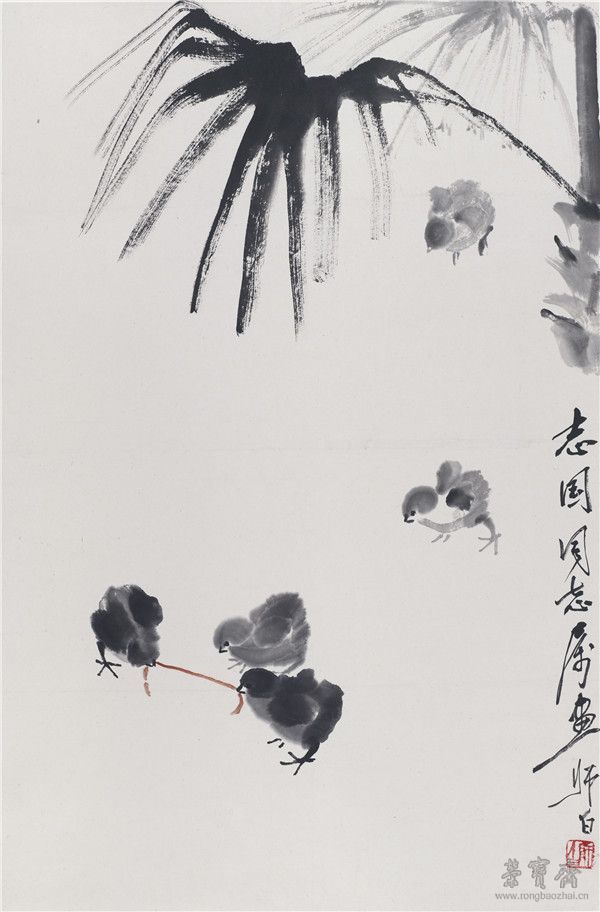 志国同志属画师白
荣宝斋
www.rongbaozhai.cn